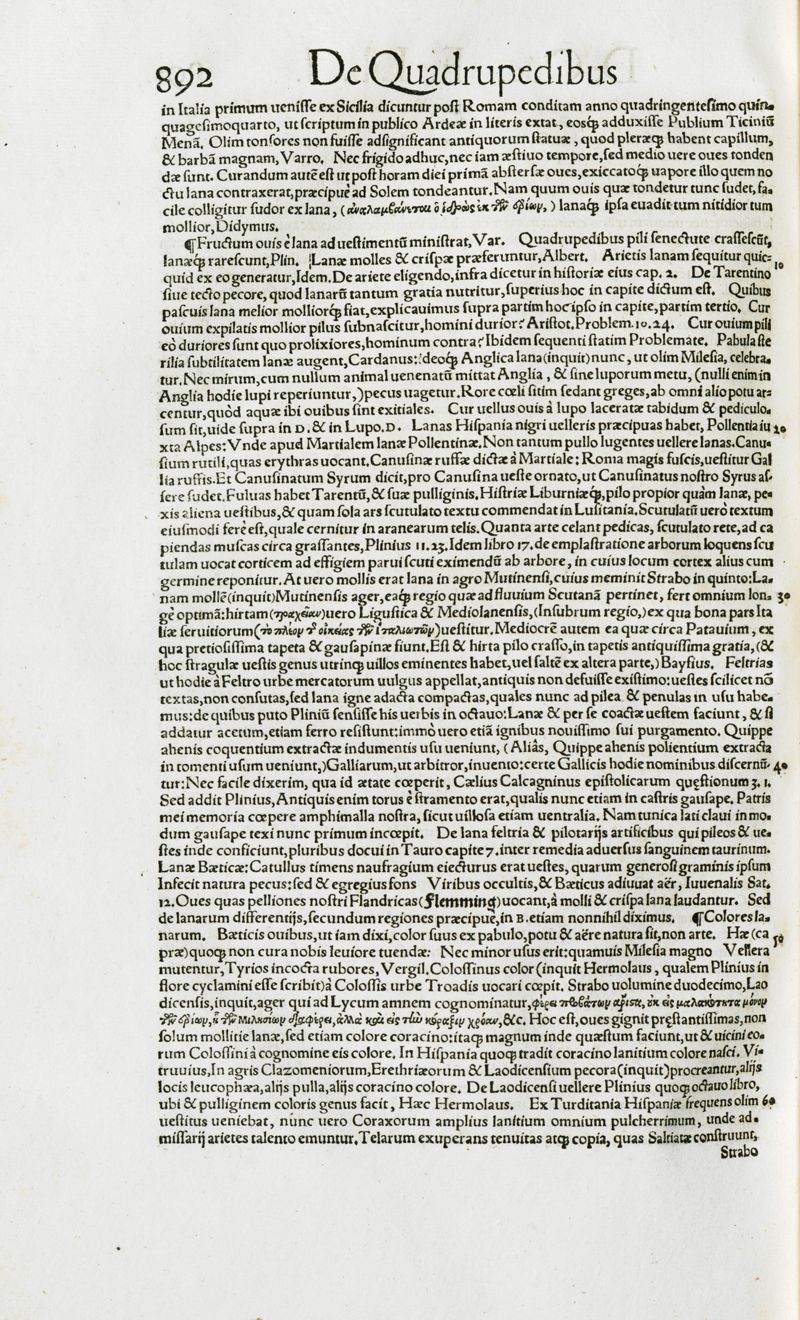 892 De Quadrupedibus
in Italia primum ueniſſe ex Sicilia dicuntur poſt Romam conditam anno quadringenteſimo quin-
quageſimoquarto, ut ſcriptum in publico Ardeæ in literis extat, eosq́; adduxiſſe Publium Ticiniũ
Menã. Olim tonſores non fuiſſe adſignificant antiquorum ſtatuæ, quod pleræq; habent capillum,
& barbã magnam, Varro. Nec frigido adhuc, nec iam æſtiuo tempore, ſed medio uere oues tonden
dæ ſunt. Curandum autẽ eſt ut poſt horam diei primã abſterſæ oues, exiccatoq́; uapore illo quem no
ctu lana contraxerat, præcipuè ad Solem tondeantur. Nam quum ouis quæ tondetur tunc ſudet, fa-
cile colligitur ſudor ex lana, (ἀναλαμβάνεται ὁ ἱδρὼς ἐκ τῶν ἐρίων,) lanaq́; ipſa euadit tum nitidior tum
mollior, Didymus.
¶ Fructum ouis è lana ad ueſtimentũ miniſtrat, Var. Quadrupedibus pili ſenectute craſſeſcũt,
lanæq́; rareſcunt, Plin. Lanæ molles & criſpæ præferuntur, Albert. Arietis lanam ſequitur quic- 10
quid ex eo generatur, Idem. De ariete eligendo, infra dicetur in hiſtoria eius cap. 2. De Tarentino
ſiue tecto pecore, quod lanarũ tantum gratia nutritur, ſuperius hoc in capite dictum eſt. Quibus
paſcuis lana melior molliorq́; fiat, explicauimus ſupra partim hoc ipſo in capite, partim tertio. Cur
ouium expilatis mollior pilus ſubnaſcitur, homini durior? Ariſtot. Problem. 10. 24. Cur ouium pili
eò duriores ſunt quo prolixiores, hominum contra? Ibidem ſequenti ſtatim Problemate. Pabula ſte
rilia ſubtilitatem lanæ augent, Cardanus: ideoq́; Anglica lana (inquit) nunc, ut olim Mileſia, celebra-
tur. Nec mirum, cum nullum animal uenenatũ mittat Anglia, & ſine luporum metu, (nulli enim in
Anglia hodie lupi reperiuntur,) pecus uagetur. Rore cœli ſitim ſedant greges, ab omni alio potu ar-
centur, quòd aquæ ibi ouibus ſint exitiales. Cur uellus ouis à lupo laceratæ tabidum & pediculo-
ſum ſit, uide ſupra in D. & in Lupo. D. Lanas Hiſpania nigri uelleris præcipuas habet, Pollentia iu 20
xta Alpes: Vnde apud Martialem lanæ Pollentinæ. Non tantum pullo lugentes uellere lanas. Canu-
ſium rutili, quas erythras uocant. Canuſinæ ruffæ dictæ à Martiale: Roma magis fuſcis, ueſtitur Gal
lia ruffis. Et Canuſinatum Syrum dicit, pro Canuſina ueſte ornato, ut Canuſinatus noſtro Syrus aſ-
ſere ſudet. Fuluas habet Tarentũ, & ſuæ pulliginis, Hiſtriæ Liburniæq́;, pilo propior quàm lanæ, pe-
xis aliena ueſtibus, & quam ſola ars ſcutulato textu commendat in Luſitania. Scutulatũ uerò textum
eiuſmodi ferè eſt, quale cernitur in aranearum telis. Quanta arte celant pedicas, ſcutulato rete, ad ca
piendas muſcas circa graſſantes, Plinius 11. 23. Idem libro 17. de emplaſtratione arborum loquens ſcu
tulam uocat corticem ad effigiem parui ſcuti eximendũ ab arbore, in cuius locum cortex alius cum
germine reponitur. At uero mollis erat lana in agro Mutinenſi, cuius meminit Strabo in quinto: La-
nam mollẽ (inquit) Mutinenſis ager, eaq́; regio quæ ad fluuium Scutanã pertinet, fert omnium lon- 30
gè optimã: hirtam (τραχεῖαν) uero Liguſtica & Mediolanenſis, (Inſubrum regio,) ex qua bona pars Ita
liæ ſeruitiorum (τὸ πλέον τῆς οἰκείας τῶν ἰταλιωτῶν) ueſtitur. Mediocrẽ autem ea quæ circa Patauium, ex
qua pretioſiſſima tapeta & gauſapinæ fiunt. Eſt & hirta pilo craſſo, in tapetis antiquiſſima gratia, (&
hoc ſtragulæ ueſtis genus utrinq; uillos eminentes habet, uel ſaltẽ ex altera parte,) Bayſius. Feltrias
ut hodie à Feltro urbe mercatorum uulgus appellat, antiquis non defuiſſe exiſtimo: ueſtes ſcilicet nõ
textas, non conſutas, ſed lana igne adacta compactas, quales nunc ad pilea & penulas in uſu habe-
mus: de quibus puto Pliniũ ſenſiſſe his uerbis in octauo: Lanæ & per ſe coactæ ueſtem faciunt, & ſi
addatur acetum, etiam ferro reſiſtunt: immò uero etiã ignibus nouiſſimo ſui purgamento. Quippe
ahenis coquentium extractæ indumentis uſu ueniunt, (Aliâs, Quippe ahenis polientium extracta
in tomenti uſum ueniunt,) Galliarum, ut arbitror, inuento: certe Gallicis hodie nominibus diſcernũ- 40
tur: Nec facile dixerim, qua id ætate cœperit, Cælius Calcagninus epiſtolicarum quęſtionum 3. 1.
Sed addit Plinius, Antiquis enim torus è ſtramento erat, qualis nunc etiam in caſtris gauſape. Patris
mei memoria cœpere amphimalla noſtra, ſicut uilloſa etiam uentralia. Nam tunica lati claui in mo-
dum gauſape texi nunc primum incœpit. De lana feltria & pilotarijs artificibus qui pileos & ue-
ſtes inde conficiunt, pluribus docui in Tauro capite 7. inter remedia aduerſus ſanguinem taurinum.
Lanæ Bæticæ: Catullus timens naufragium eiecturus erat ueſtes, quarum generoſi graminis ipſum
Infecit natura pecus: ſed & egregius fons Viribus occultis, & Bæticus adiuuat aër, Iuuenalis Sat.
12. Oues quas pelliones noſtri Flandricas (flemming) uocant, à molli & criſpa lana laudantur. Sed
de lanarum differentijs, ſecundum regiones præcipuè, in B. etiam nonnihil diximus. ¶ Colores la-
narum. Bæticis ouibus, ut iam dixi, color ſuus ex pabulo, potu & aëre natura ſit, non arte. Hæ (ca 50
præ) quoq; non cura nobis leuiore tuendæ: Nec minor uſus erit: quamuis Mileſia magno Vellera
mutentur, Tyrios incocta rubores, Vergil. Coloſſinus color (inquit Hermolaus, qualem Plinius in
flore cyclamini eſſe ſcribit) à Coloſſis urbe Troadis uocari cœpit. Strabo uolumine duodecimo, Lao
dicenſis, inquit, ager qui ad Lycum amnem cognominatur, φέρει προβάτων ἄριστα, οὐκ εἰς μαλακότητα μόνον
τῶν ἐρίων, ᾗ τῶν Μιλησίων διαφέρει, ἀλλὰ καὶ εἰς τὴν κοραξὴν χρόαν, &c. Hoc eſt, oues gignit pręſtantiſſimas, non
ſolum mollitie lanæ, ſed etiam colore coracino: itaq́; magnum inde quæſtum faciunt, ut & uicini eo-
rum Coloſſini à cognomine eis colore. In Hiſpania quoq; tradit coracino lanitium colore naſci. Vi-
truuius, In agris Clazomeniorum, Erethriæorum & Laodicenſium pecora (inquit) procreantur, alijs
locis leucophæa, alijs pulla, alijs coracino colore. De Laodicenſi uellere Plinius quoq; octauo libro,
ubi & pulliginem coloris genus facit, Hæc Hermolaus. Ex Turditania Hiſpaniæ frequens olim 60
ueſtitus ueniebat, nunc uero Coraxorum amplius lanitium omnium pulcherrimum, unde ad-
miſſarij arietes talento emuntur. Telarum exuperans tenuitas atq; copia, quas Saltiatæ conſtruunt,
Strabo